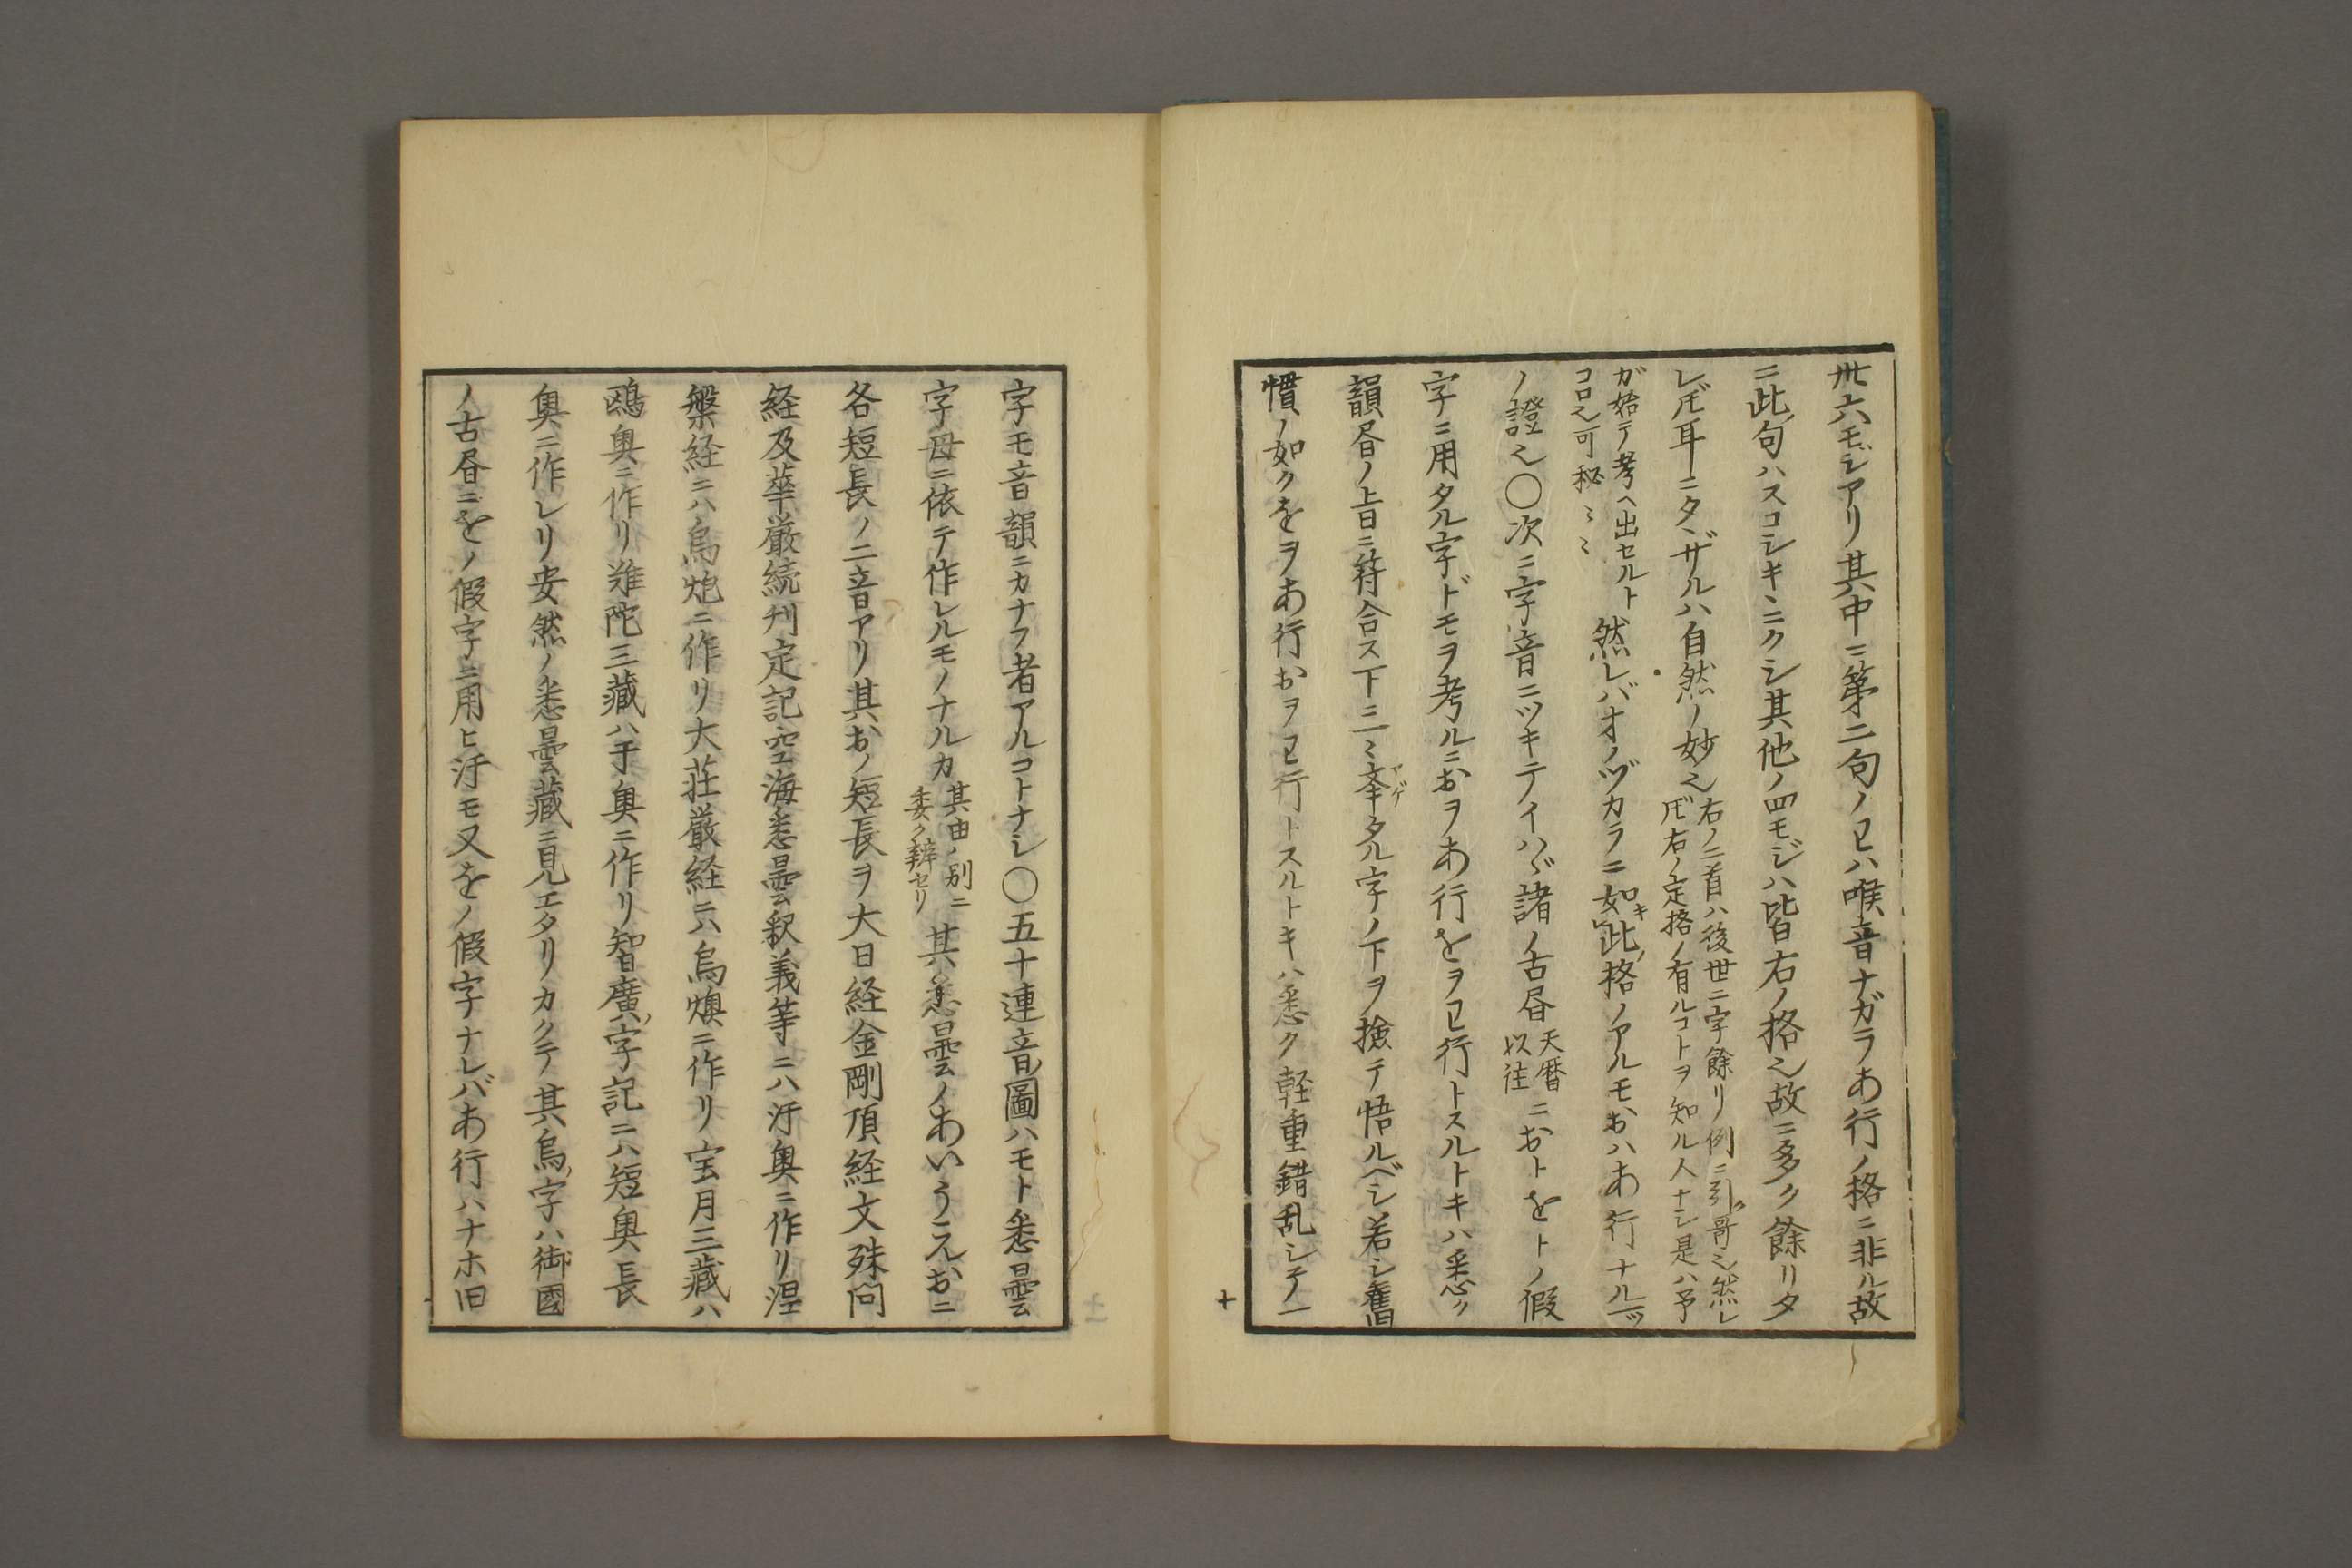 卅六モジアリ其中ニ第二句ノワハ喉音ナガラあ行ノ格ニ非ル故
ニ此句ハスコシキヽニクシ其他ノ四モジハ皆右ノ格也故ニ多ク餘リタ
レ𪜈耳ニタヽザルハ自然ノ妙也
右ノ二首ハ後世ニ字餘リノ例ニ引ク哥也然レ
𪜈右ノ定格ノ有ルコトヲ知ル人ナシ是ハ予
ガ始テ考ヘ出セルト
コロ也可秘〻〻
然レバオノヅカラニ如キ此ノ格ノアルモおハあ行ナル一ツ
ノ證也〇次ニ字音ニツキテイハヾ諸ノ古昬
天暦
以往
ニおトをトノ假
字ニ用タル字ドモヲ考ルニおヲあ行をヲワ行トスルトキハ悉ク
韻昬ノ旨ニ符合ス下ニ〻挙アゲタル字ノ下ヲ撿テ悟ルベシ若シ舊
慣ノ如クをヲあ行おヲワ行トスルトキハ悉ク軽重錯乱シテ一
十
字モ音韻ニカナフ者アルコトナシ〇五十連音ノ圖ハモト悉曇
字母ニ依テ作レルモノナルカ
其由ハ別ニ
委ク辨セリ
其ノ悉曇ノあいうえおニ
各短長ノ二音アリ其おノ短長ヲ大日経金剛頂経文殊問
経及華厳続刋定記空海悉曇釈義等ニハ汙奥ニ作リ涅
槃経ニハ烏炮ニ作リ大荘厳経ニハ烏燠ニ作リ宝月三藏ハ
鴎奥ニ作リ難陀三藏ハ于奥ニ作リ智廣ノ字記ニハ短奥長
奥ニ作レリ安然ノ悉曇藏ニ見エタリカクテ其烏ノ字ハ御國
ノ古昬ニをノ假字ニ用ヒ汙モ又をノ假字ナレバあ行ハナホ旧